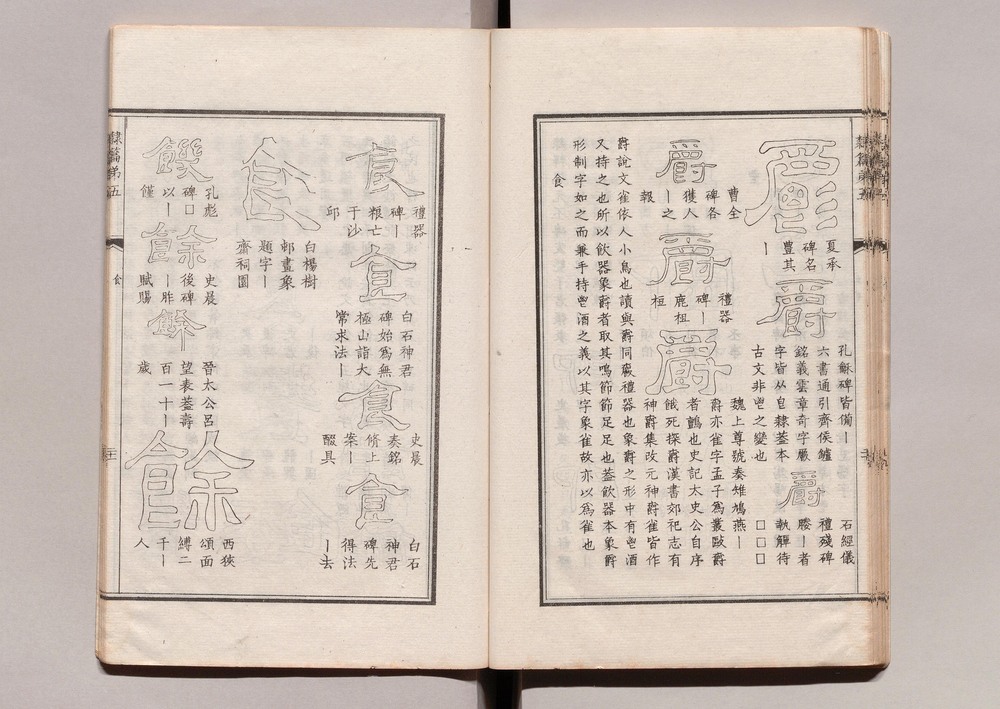 隸篇第五
爵
夏承
碑名
豐其
丨
爵
孔龢碑皆備丨
六書通引齊侯鑪
銘義雲章奇字厰
字皆从皀隸葢本
古文非鬯之變也
爵
石經儀
禮殘碑
媵丨者
執觶待
□□□
爵
曹全
碑各
獲人
丨之
報
爵
禮器
碑丨
鹿柤
桓
爵
魏上尊號奏雉鳩燕丨
爵亦雀字孟子爲叢敺爵
者鸇也史記太史公自序
餓死探爵漢書郊祀志有
神爵集改元神爵雀皆作
爵說文雀依人小鳥也讀與爵同厰禮器也象爵之形中有鬯酒
又持之也所以飲器象爵者取其鳴節節足足也葢飲器本象爵
形制字如之而兼手持鬯酒之義以其字象雀故亦以爲雀也
食
食
禮器
碑丨
糧亡
于沙
邱
食
白石神君
碑始爲無
極山詣大
常求法丨
食
史晨
奏銘
脩上
案丨
醊具
食
白石
神君
碑先
得法
丨去
食
白楊樹
邨畫象
題字丨
齋祠園
饌
孔彪
碑□
以丨
僅
餘
史晨
後碑
丨胙
賦賜
餘
晉太公呂
望表葢壽
百一十丨
歲
餘
西狹
頌面
縛二
千丨
人
隸篇第五
食